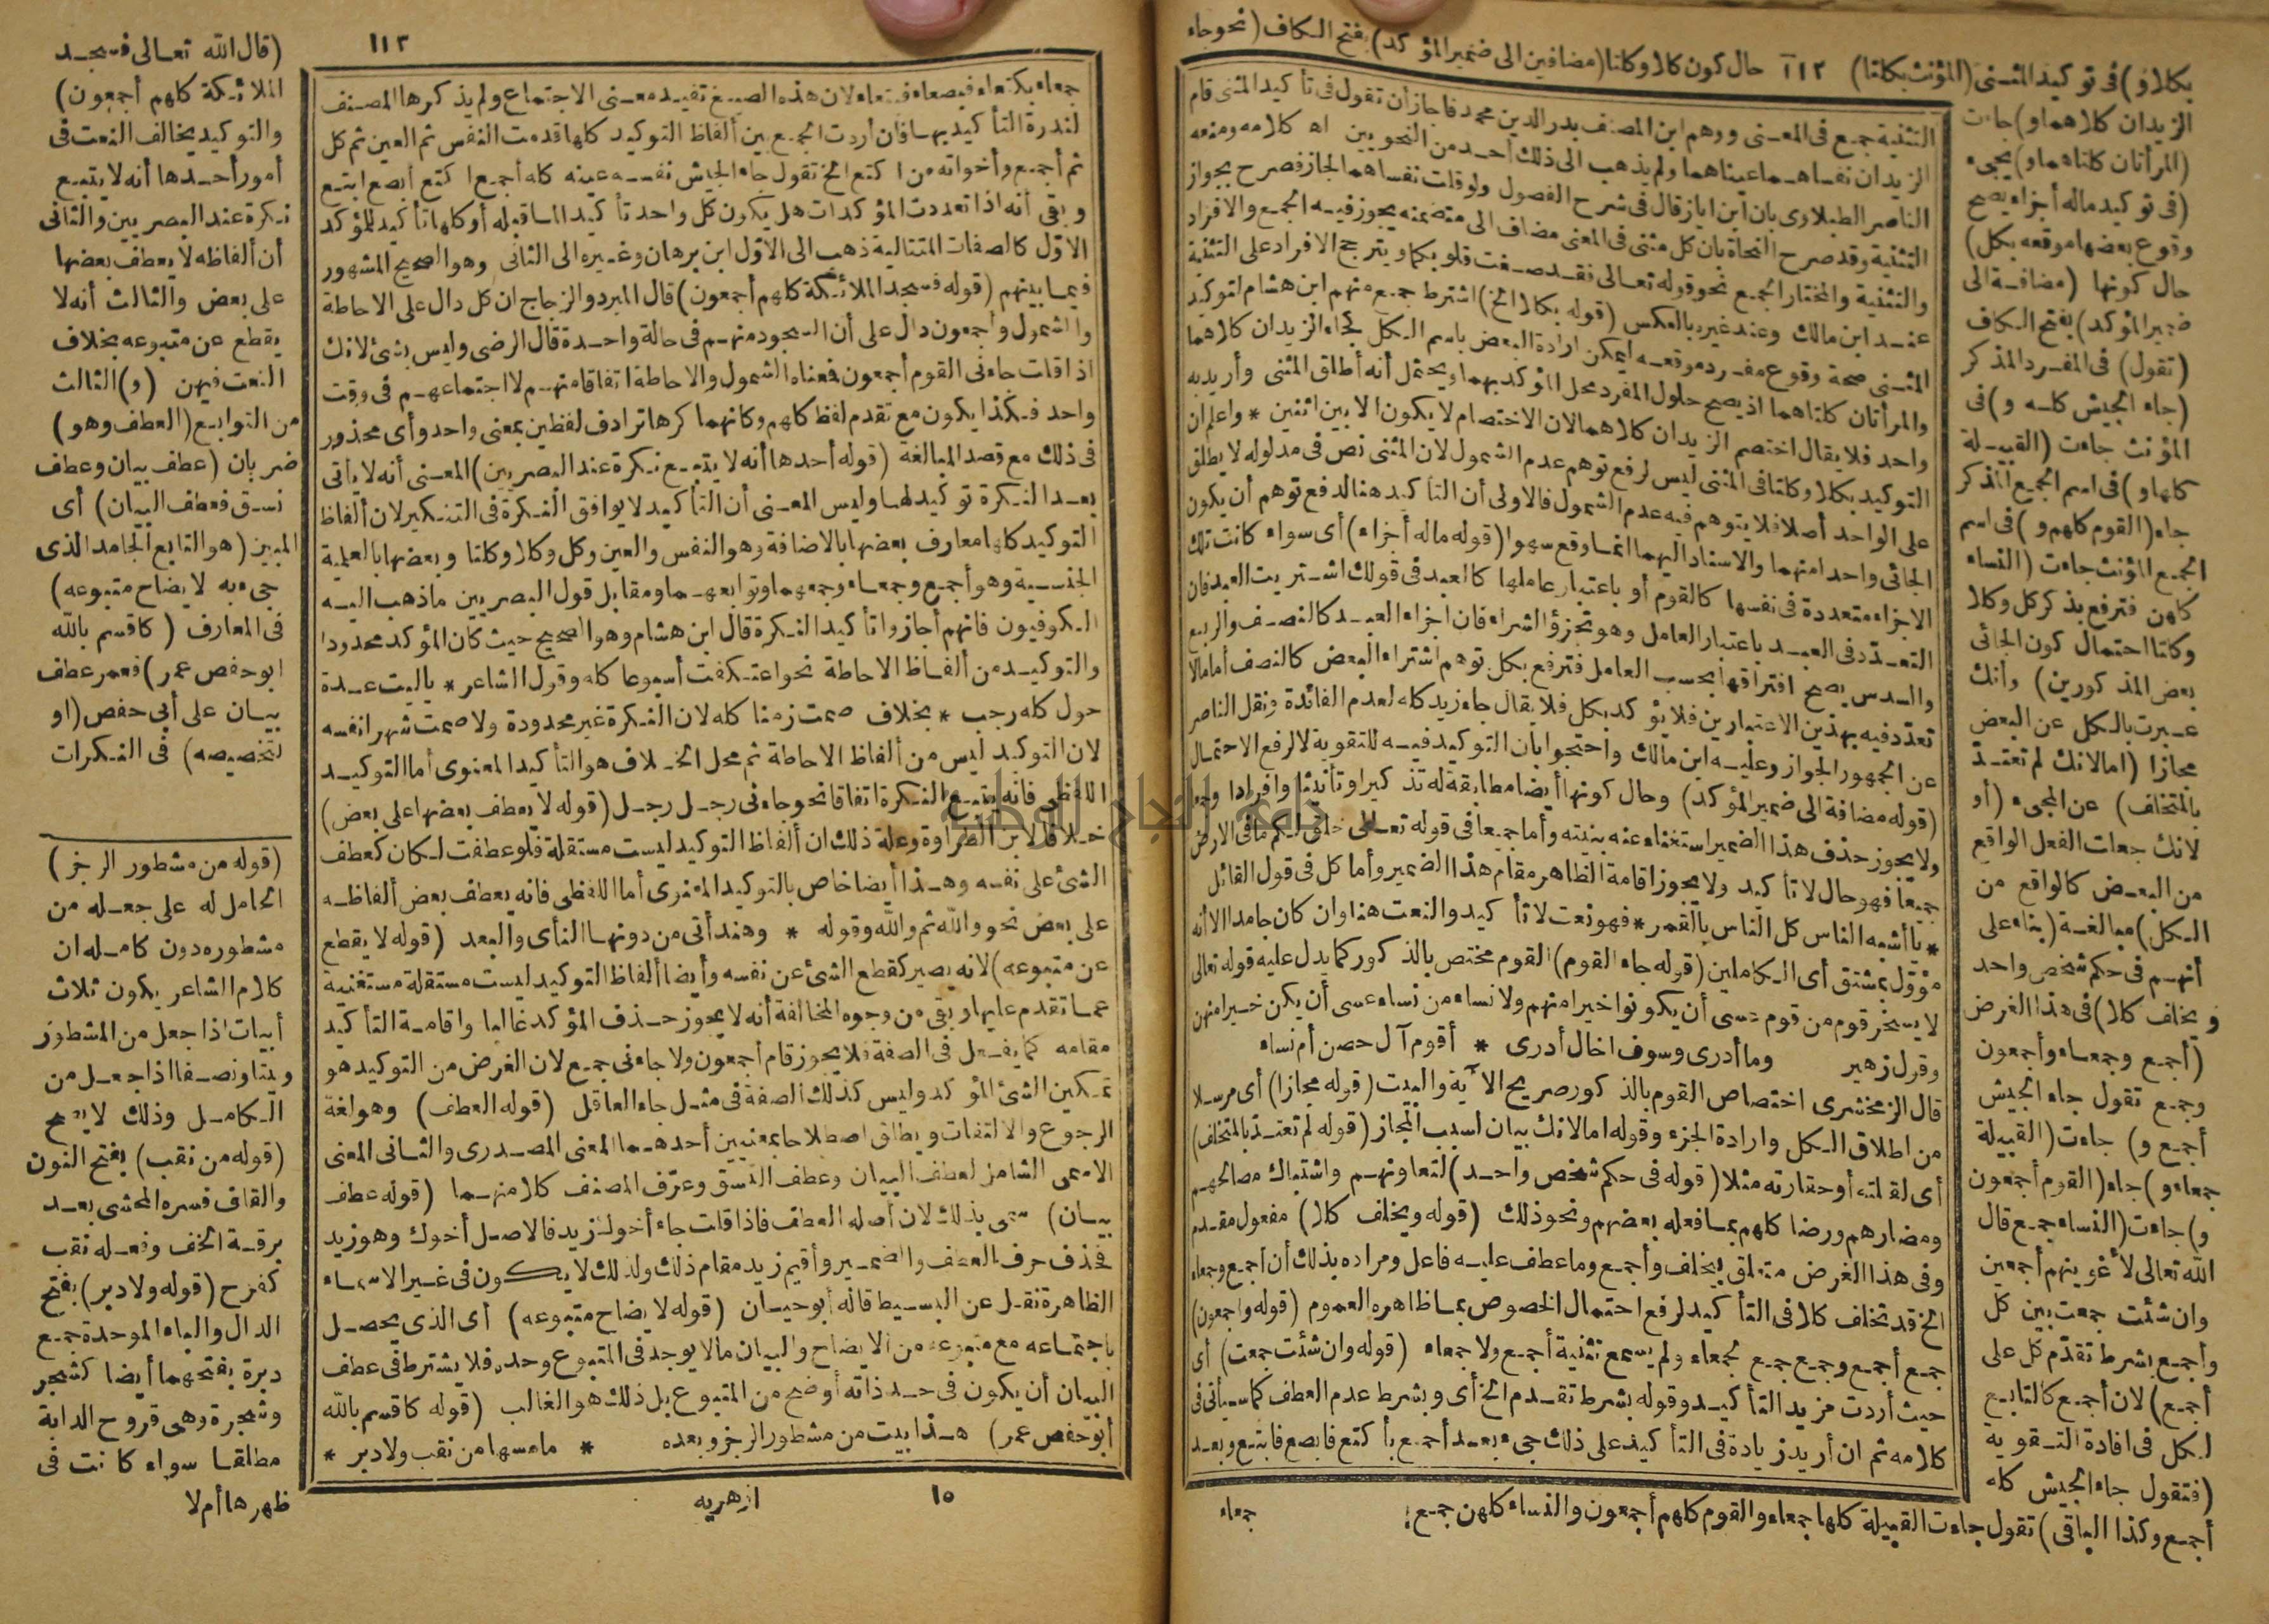 بكلا و) فى توكيد المثنى (المؤنث بكلتا) ١١٢ حال كون كلا وكلتا (مضافين الى ضمير المؤكد) بفتح الكاف (نحو جاء
الزيدان كلاهما و) جاءت
(المرأتان كلتاهما و) يجىء
(فى توكيد ماله أجزاء يصح
وقوع بعضها موقعه بكل)
حال كونها (مضافة الى
ضمير المؤكد) بفتح الكاف
(تقول) فى المفرد المذكر
(جاء الجيش كله و) فى
المؤنث جاءت (القبيلة
كلها و) فى اسم الجمع المذكر
جاء (القوم كلهم و) فى اسم
الجمع المؤنث جاءت (النساء
كلهن فترفع بذكر كل وكلا
وكلتا احتمال كون الجائى
بعض المذكورين) وأنك
عبرت بالكل عن البعض
مجازا (اما لانك لم تعتد
بالمتخلف) عن المجىء (أو
لانك جعلت الفعل الواقع
من البعض كالواقع من
الكل) مبالغة (بناء على
أنهم فى حكم شخص واحد
ويخلف كلا) فى هذا الغرض
(أجمع وجمعاء وأجمعون
وجمع تقول جاء الجيش
أجمع و) جاءت (القبيلة
جمعاء و) جاء (القوم أجمعون
و) جاءت (النساء جمع قال
الله تعالى لأغوينهم أجمعين
وان شئت جمعت بين كل
وأجمع بشرط تقدّم كل على
أجمع) لان أجمع كالتابع
لكل فى افادة التقوية
(فتقول جاء الجيش كله
أجمع وكذا الباقى) تقول جاءت القبيلة كلها جمعاء والقوم كلهم أجمعون والنساء كلهن جمع
التثنية جمع فى المعنى ووهم ابن المصنف بدر الدين محمد فاجاز أن تقول فى تأكيد المثنى قام
الزيدان نفساهما عيناهما ولم يذهب الى ذلك أحد من النحويين اه كلامه ومنعه
الناصر الطبلاوى بان ابن اياز قال فى شرح الفصول ولو قلت نفساهما لجاز فصرح بجواز
التثنية وقد صرح النحاة بان كل مثنى فى المعنى مضاف الى متضمنه يجوز فيه الجمع والافراد
والتثنية والمختار الجمع نحو قوله تعالى فقد صغت قلوبكما ويترجح الافراد على التثنية
عند ابن مالك وعند غيره بالعكس (قوله بكلا الخ) اشترط جمع منهم ابن هشام لتوكيد
المثنى صحة وقوع مفرد موقعه ليمكن ارادة البعض باسم الكل كجاء الزيدان كلاهما
والمرأتان كلتاهما اذ يصح حلول المفرد محل المؤكد بهما ويحتمل أنه أطلق المثنى وأريد به
واحد فلا يقال اختصم الزيدان كلاهما لان الاختصام لا يكون الا بين اثنين * واعلم ان
التوكيد بكلا وكلتا فى المثنى ليس لرفع توهم عدم الشمول لان المثنى نص فى مدلوله لا يطلق
على الواحد أصلا فلا يتوهم فيه عدم الشمول فالاولى أن التأكيد هنا لدفع توهم أن يكون
الجائى واحدا منهما والاسناد اليهما انما وقع سهوا (قوله ماله أجزاء) أى سواء كانت تلك
الاجزاء متعددة فى نفسها كالقوم أو باعتبار عاملها كالعبد فى قولك اشتريت العبد فان
التعدّد فى العبد باعتبار العامل وهو تجزؤ الشراء فان اجزاء العبد كالنصف والربع
والسدس يصح افتراقها بحسب العامل فترفع بكل توهم اشتراء البعض كالنصف أما مالا
تعدّد فيه بهذين الاعتبارين فلا يؤكد بكل فلا يقال جاء زيد كله لعدم الفائدة ونقل الناصر
عن الجمهور الجواز وعليه ابن مالك واحتجوا بان التوكيد فيه للتقوية لا لرفع الاحتمال
(قوله مضافة الى ضمير المؤكد) وحال كونها أيضا مطابقة له تذكيرا وتأنيثا وافرادا وجمعا
ولا يجوز حذف هذا الضمير استغناء عنه بنيته وأما جميعا فى قوله تعالى خلق لكم ما فى الارض
جميعا فهو حال لا تأكيد ولا يجوز اقامة الظاهر مقام هذا الضمير وأما كل فى قول القائل
* يا أشبه الناس كل الناس بالقمر * فهو نعت لا تأكيد والنعت هنا وان كان جامدا الا أنه
مؤوّل بمشتق أى الكاملين (قوله جاء القوم) القوم مختص بالذكور كما يدل عليه قوله تعالى
لا يسخر قوم من قوم عسى أن يكونوا خيرا منهم ولا نساء من نساء عسى أن يكن خيرا منهن
وقول زهير وما أدرى وسوف اخال أدرى * أقوم آل حصن أم نساء
قال الزمخشرى اختصاص القوم بالذكور صريح الآية والبيت (قوله مجازا) أى مرسلا
من اطلاق الكل وارادة الجزء وقوله اما لانك بيان لسبب المجاز (قوله لم تعتد بالمتخلف)
أى لقلته أو حقارته مثلا (قوله فى حكم شخص واحد) لتعاونهم واشتباك مصالحهم
ومضارهم ورضا كلهم بما فعله بعضهم ونحو ذلك (قوله ويخلف كلا) مفعول مقدم
وفى هذا الغرض متعلق بيخلف وأجمع وما عطف عليه فاعل ومراده بذلك أن أجمع وجمعاء
الخ قد تخلف كلا فى التأكيد لرفع احتمال الخصوص بما ظاهره العموم (قوله وأجمعون)
جمع أجمع وجمع جمع لجمعاء ولم يسمع تثنية أجمع ولا جمعاء (قوله وان شئت جمعت) أى
حيث أردت مزيد التأكيد وقوله بشرط تقدم الخ أى وبشرط عدم العطف كما سيأتى فى
كلامه ثم ان أريد زيادة فى التأكيد على ذلك جىء بعد أجمع بأكتع فابصع فابتع وبعد
جمعاء
١١٣
جمعاء بكتعاء فبصعاء فبتعاء لان هذه الصيغ تفيد معنى الاجتماع ولم يذكرها المصنف
لندرة التأكيد بها فان أردت الجمع بين ألفاظ التوكيد كلها قدمت النفس ثم العين ثم كل
ثم أجمع وأخواته من اكتع الخ تقول جاء الجيش نفسه عينه كله أجمع اكتع أبصع ابتع
وبقى أنه اذا تعددت المؤكدات هل يكون كل واحد تأكيدا لما قبله أو كلها تأكيد للمؤكد
الاوّل كالصفات المتتالية ذهب الى الاوّل ابن برهان وغيره الى الثانى وهو الصحيح المشهور
فيما بينهم (قوله فسجد الملائكة كلهم أجمعون) قال المبرد والزجاج ان كل دال على الاحاطة
والشمول وأجمعون دال على أن السجود منهم فى حالة واحدة قال الرضى وليس بشئ لانك
اذا قلت جاءنى القوم أجمعون فمعناه الشمول والاحاطة اتفاقا منهم لا اجتماعهم فى وقت
واحد فكذا يكون مع تقدم لفظ كلهم وكأنهما كرها ترادف لفظين بمعنى واحد وأى محذور
فى ذلك مع قصد المبالغة (قوله أحدها أنه لا يتبع نكرة عند البصريين) المعنى أنه لا يأتى
بعد النكرة توكيد لها وليس المعنى أن التأكيد لا يوافق النكرة فى التنكير لان ألفاظ
التوكيد كلها معارف بعضها بالاضافة وهو النفس والعين وكل وكلا وكلتا وبعضها بالعلمية
الجنسية وهو أجمع وجمعاء وجمعهما وتوابعهما ومقابل قول البصريين ما ذهب اليه
الكوفيون فانهم أجازوا تأكيد النكرة قال ابن هشام وهو الصحيح حيث كان المؤكد محدودا
والتوكيد من ألفاظ الاحاطة نحو اعتكفت أسبوعا كله وقول الشاعر * ياليت عدة
حول كله رجب * بخلاف صمت زمنا كله لان النكرة غير محدودة ولا صمت شهرا نفسه
لان التوكيد ليس من ألفاظ الاحاطة ثم محل الخلاف هو التأكيد المعنوى أما التوكيد
اللفظى فانه يتبع النكرة اتفاقا نحو جاءنى رجل رجل (قوله لا يعطف بعضها على بعض)
خلافا لابن الطراوة وعلة ذلك ان ألفاظ التوكيد ليست مستقلة فلو عطفت لكان كعطف
الشئ على نفسه وهذا أيضا خاص بالتوكيد المعنوى أما اللفظى فانه يعطف بعض ألفاظه
على بعض نحو والله ثم والله وقوله * وهند أتى من دونها النأى والبعد (قوله لا يقطع
عن متبوعه) لانه يصير كقطع الشئ عن نفسه وأيضا ألفاظ التوكيد ليست مستقلة مستغنية
عما تقدم عليها وبقى من وجوه المخالفة أنه لا يجوز حذف المؤكد غالبا واقامة التأكيد
مقامه كما يفعل فى الصفة فلا يجوز قام أجمعون ولا جاءنى جمع لان الغرض من التوكيد هو
تمكين الشئ المؤكد وليس كذلك الصفة فى مثل جاء العاقل (قوله العطف) وهو لغة
الرجوع والالتفات ويطلق اصطلاحا بمعنيين أحدهما المعنى المصدرى والثانى المعنى
الاسمى الشامل لعطف البيان وعطف النسق وعرّف المصنف كلا منهما (قوله عطف
بيان) سمى بذلك لان أصله العطف فاذا قلت جاء أخوك زيد فالاصل أخوك وهو زيد
فحذف حرف العطف والضمير وأقيم زيد مقام ذلك ولذلك لا يكون فى غير الاسماء
الظاهرة نقل عن البسيط قاله أبو حيان (قوله لايضاح متبوعه) أى الذى يحصل
باجتماعه مع متبوعه من الايضاح والبيان مالا يوجد فى المتبوع وحده فلا يشترط فى عطف
البيان أن يكون فى حد ذاته أوضح من المتبوع بل ذلك هو الغالب (قوله كاقسم بالله
أبو حفص عمر) هذا بيت من مشطور الرجز وبعده * مامسها من نقب ولا دبر *
(قال الله تعالى فسجد
الملائكة كلهم أجمعون)
والتوكيد يخالف النعت فى
أمور أحدها أنه لا يتبع
نكرة عند البصريين والثانى
أن ألفاظه لا يعطف بعضها
على بعض والثالث أنه لا
يقطع عن متبوعه بخلاف
النعت فيهن (و) الثالث
من التوابع (العطف وهو)
ضربان (عطف بيان وعطف
نسق فعطف البيان) أى
المبين (هو التابع الجامد الذى
جىء به لايضاح متبوعه)
فى المعارف (كاقسم بالله
ابو حفص عمر) فعمر عطف
بيان على أبى حفص (او
لتخصيصه) فى النكرات
(قوله من مشطور الرجز)
الحامل له على جعله من
مشطوره دون كامله ان
كلام الشاعر يكون ثلاث
أبيات اذا جعل من المشطور
وبيتا ونصفا اذا جعل من
الكامل وذلك لا يصح
(قوله من نقب) بفتح النون
والقاف فسره المحشى بعد
برقة الخف وفعله نقب
كفرح (قوله ولا دبر) بفتح
الدال والباء الموحدة جمع
دبرة بفتحهما أيضا كشجر
وشجرة وهى قروح الدابة
مطلقا سواء كانت فى
ظهرها أم لا
١٥ ازهريه